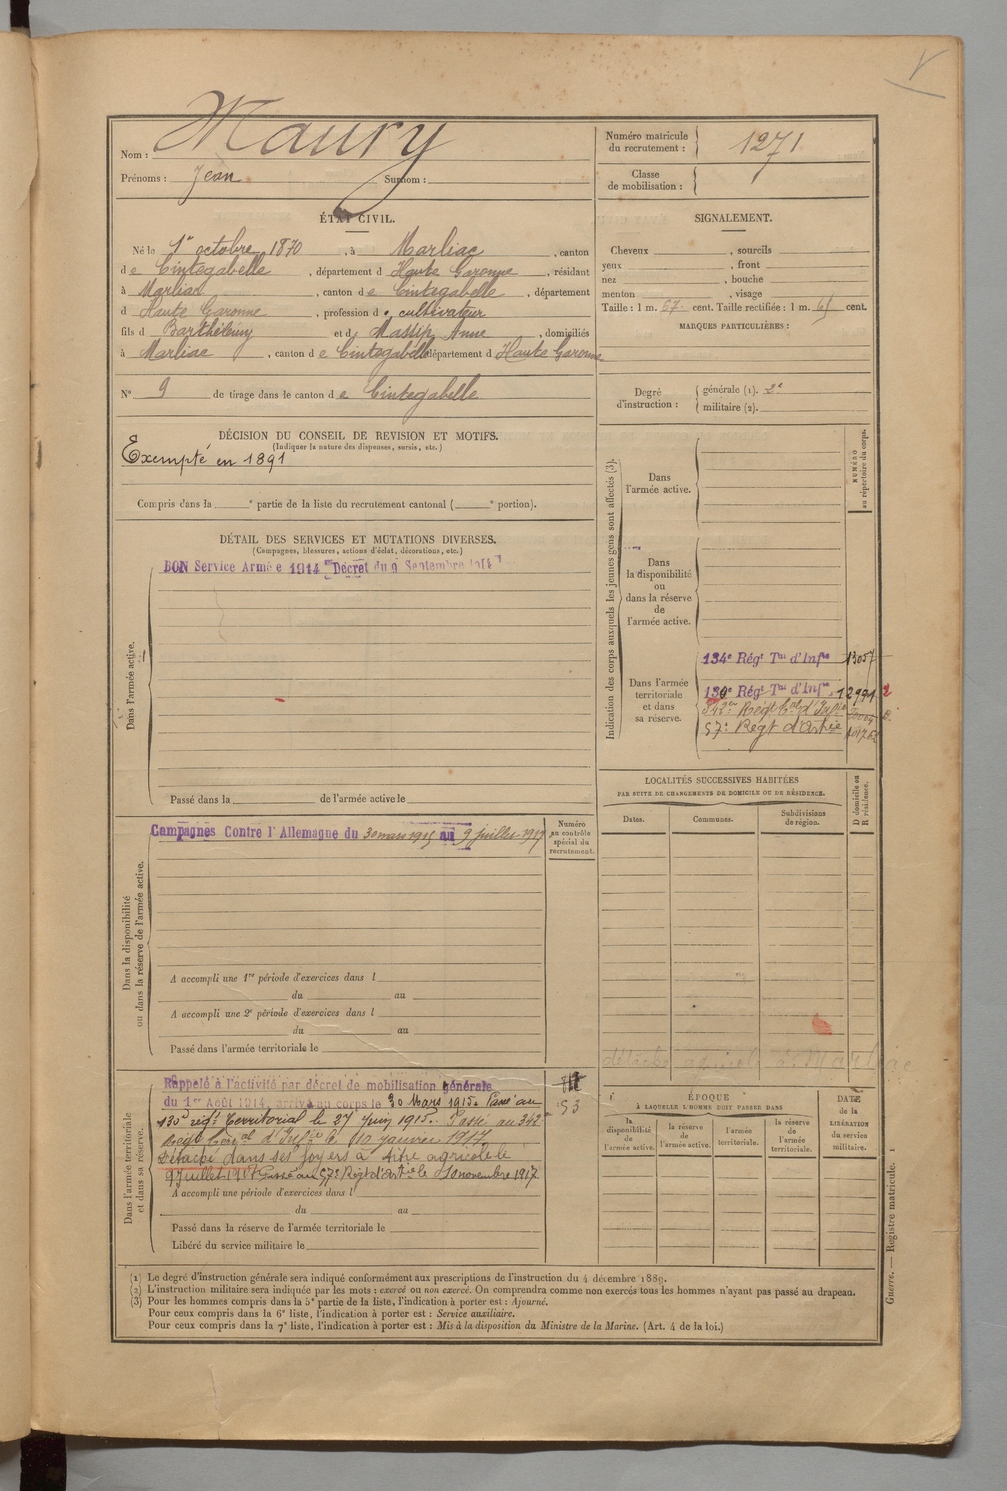 Nom : Maury
Prénoms : Jean Surnom :
Numéro matricule du recrutement : 1271
Classe de mobilisation :
ÉTAT CIVIL.
Né le 1er octobre 1870, à Marliac, canton
de Cintegabelle, département d Haute Garonne, résidant
à Marliac, canton de Cintegabelle, département
d Haute Garonne, profession de cultivateur
fils d Barthélémy et d Massip Anne, domiciliés
à Marliac, canton de Cintegabelle département d Haute Garonne
N° 9 de tirage dans le canton de Cintegabelle
SIGNALEMENT.
Cheveux , sourcils
yeux , front
nez , bouche
menton , visage
Taille : 1 m. 67 cent. Taille rectifiée : 1 m. cent.
MARQUES PARTICULIÈRES :
Degré d'instruction : générale (1). 2e
militaire (2).
DÉCISION DU CONSEIL DE REVISION ET MOTIFS.
(Indiquer la nature des dispenses, sursis, etc.)
Exempté en 1891
Compris dans la e partie de la liste du recrutement cantonal ( e portion).
DÉTAIL DES SERVICES ET MUTATIONS DIVERSES.
(Campagnes, blessures, actions d'éclat, décorations, etc.)
BON Service Armée 1914 Décret du 9 Septembre 1914
Dans l'armée active.
Passé dans la de l'armée active le
Indication des corps auxquels les jeunes gens sont affectés (3).
NUMÉRO au répertoire du corps.
Dans l'armée active.
Dans la disponibilité ou dans la réserve de l'armée active.
Dans l'armée territoriale et dans sa réserve.
134e Régt Tal d'Infie 13057
130e Régt Tal d'Infie 12991
342e Regt d'Infie
57e Regt d'Artie
LOCALITÉS SUCCESSIVES HABITÉES
PAR SUITE DE CHANGEMENTS DE DOMICILE OU DE RÉSIDENCE.
Dates. Communes. Subdivisions de région. D domicile ou R résidence.
Dans la disponibilité ou dans la réserve de l'armée active.
Campagnes Contre l'Allemagne du 30 mars 1915 au 9 juillet 1917
Numéro au contrôle spécial du recrutement.
A accompli une 1re période d'exercices dans l
du au
A accompli une 2e période d'exercices dans l
du au
Passé dans l'armée territoriale le
détaché agricole à Marliac
Dans l'armée territoriale et dans sa réserve.
Rappelé à l'activité par décret de mobilisation générale
du 1er Août 1914, arrivé au corps le 30 Mars 1915. Passé au
130e régt Territorial le 27 Juin 1915. Passé au 342e
Regt d'Infie le 10 janvier 1917
Détaché dans ses foyers à titre agricole le
9 juillet 1917 Passé au 57e Régt d'Artie le 10 novembre 1917
53
A accompli une période d'exercices dans l
du au
Passé dans la réserve de l'armée territoriale le
Libéré du service militaire le
ÉPOQUE
À LAQUELLE L'HOMME DOIT PASSER DANS
la disponibilité de l'armée active.
la réserve de l'armée active.
l'armée territoriale.
la réserve de l'armée territoriale.
DATE de la LIBÉRATION du service militaire.
Guerre. — Registre matricule. 1
(1) Le degré d'instruction générale sera indiqué conformément aux prescriptions de l'instruction du 4 décembre 1889.
(2) L'instruction militaire sera indiquée par les mots : exercé ou non exercé. On comprendra comme non exercés tous les hommes n'ayant pas passé au drapeau.
(3) Pour les hommes compris dans la 5e partie de la liste, l'indication à porter est : Ajourné.
Pour ceux compris dans la 6e liste, l'indication à porter est : Service auxiliaire.
Pour ceux compris dans la 7e liste, l'indication à porter est : Mis à la disposition du Ministre de la Marine. (Art. 4 de la loi.)